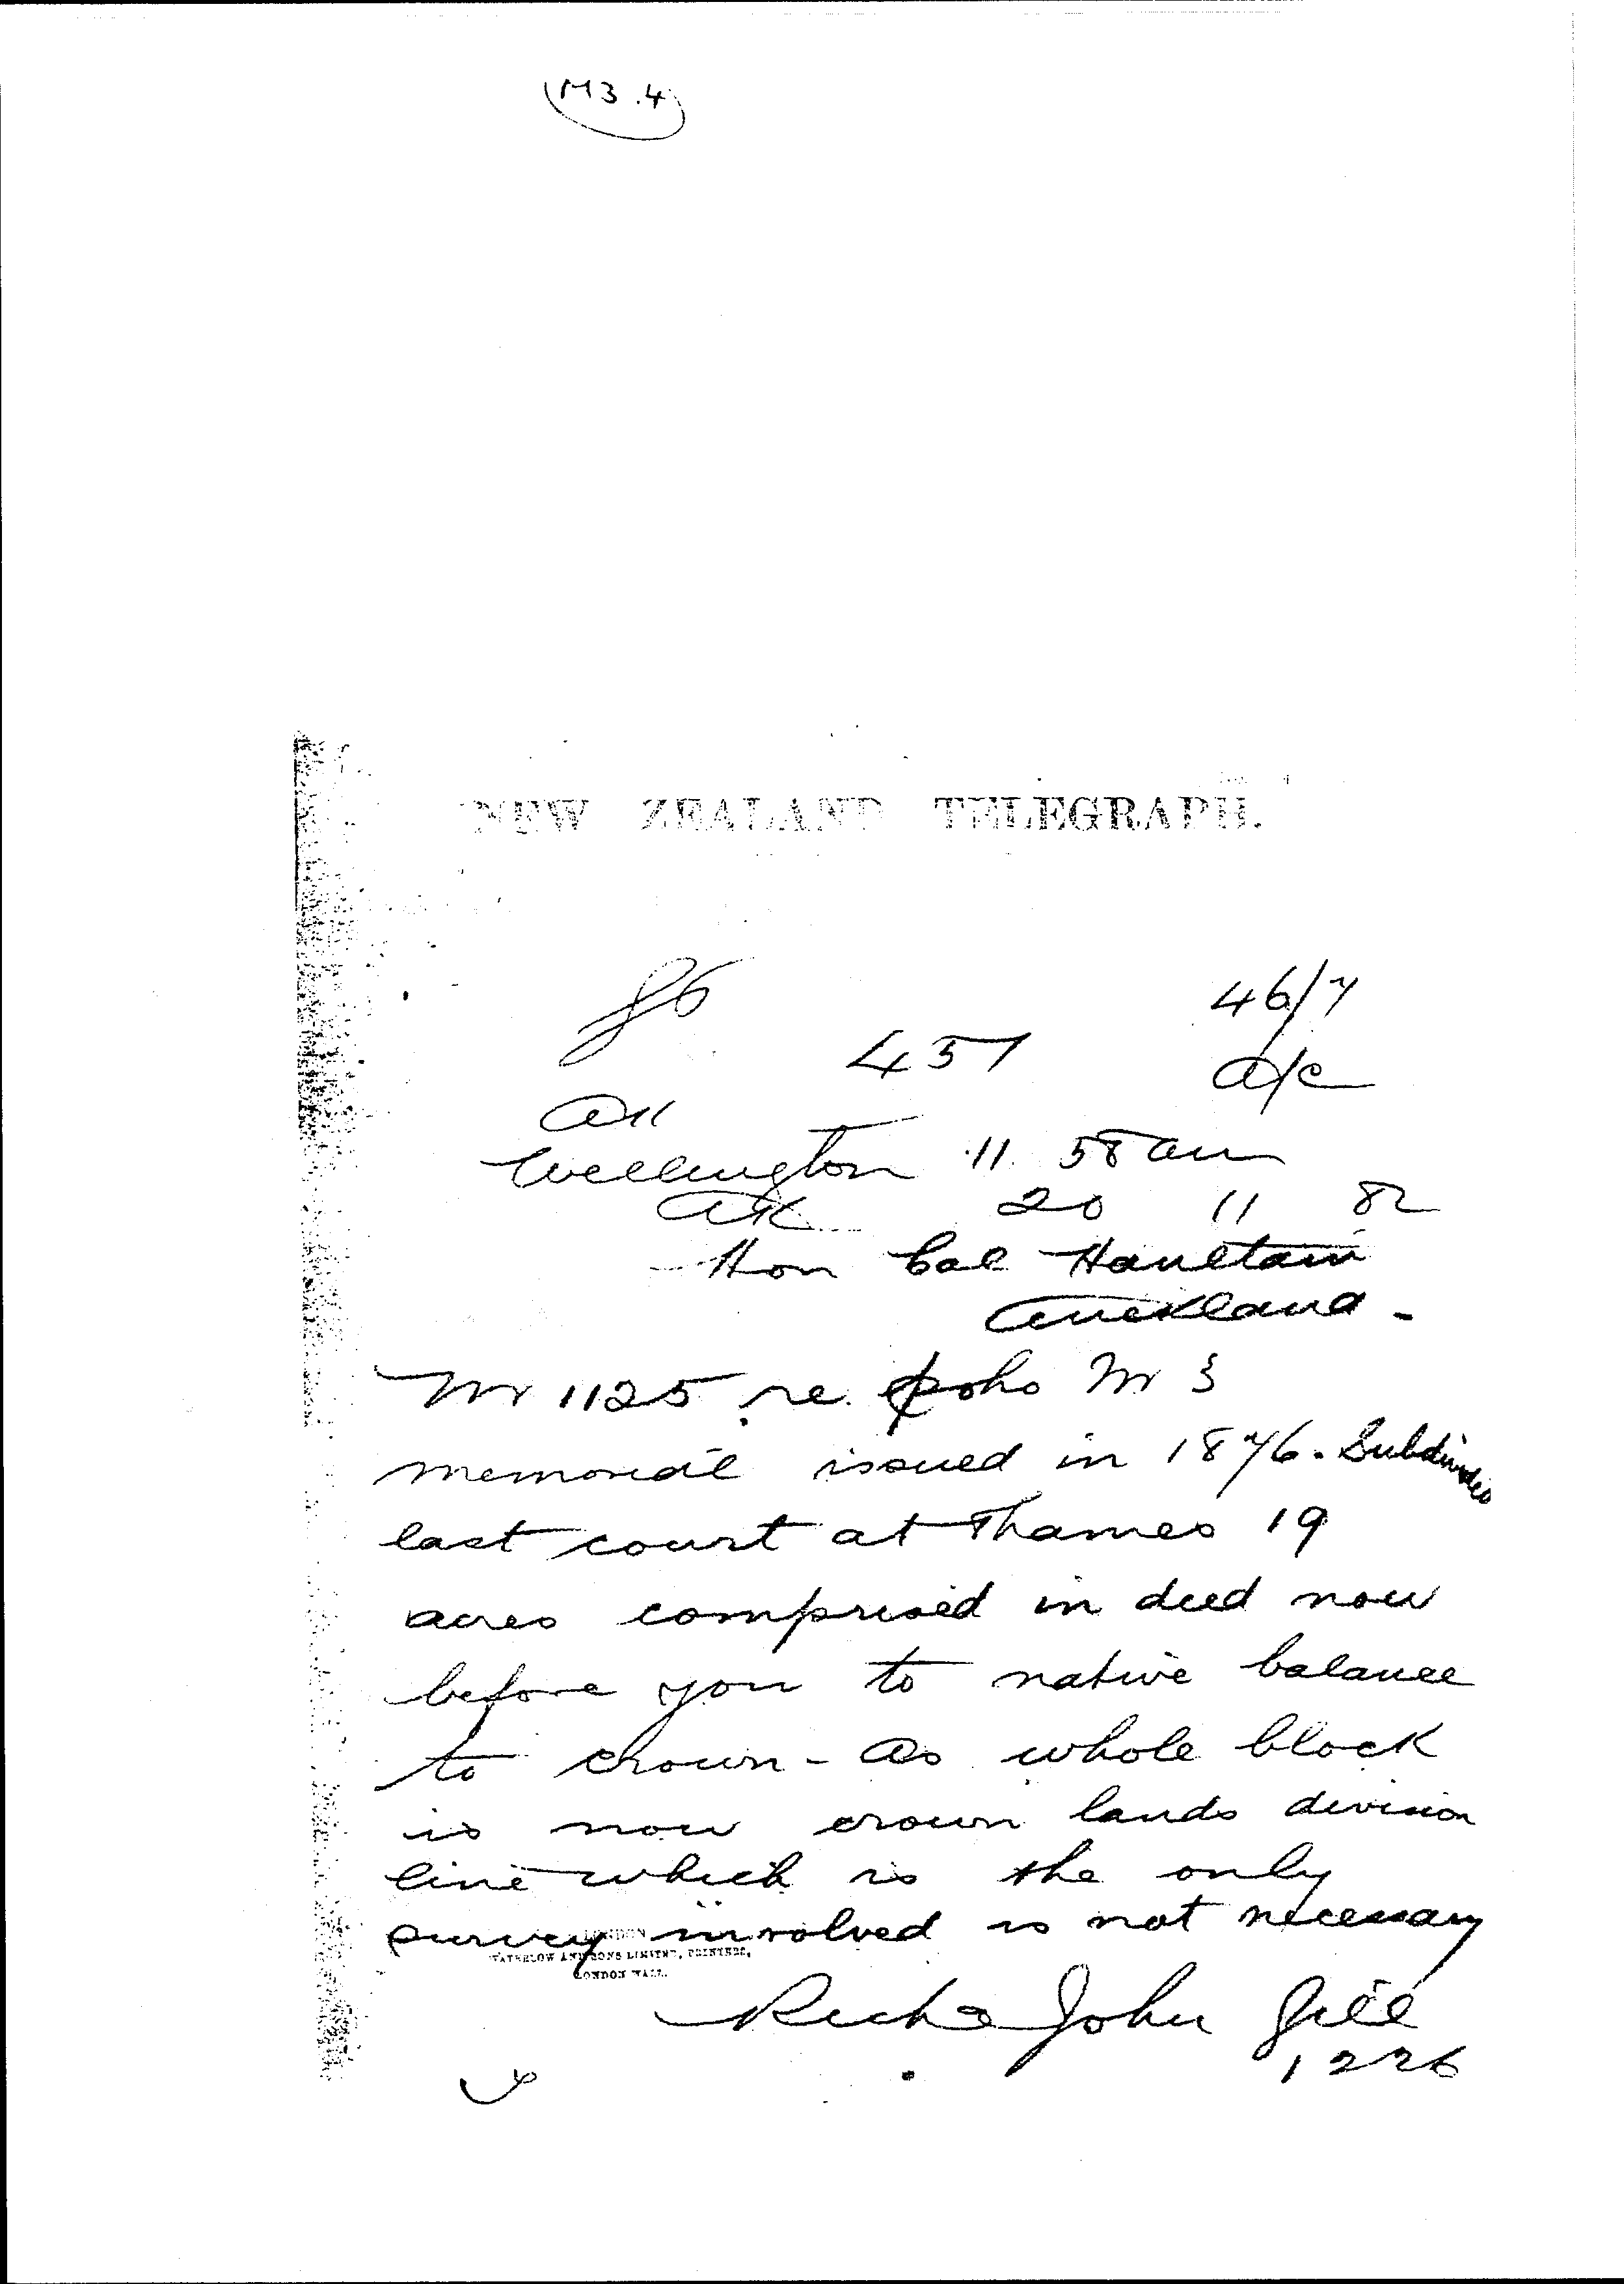 M3.4
NEW ZEALAND TELEGRAPH.
86
46/7
457
a/c
AK
Wellington 11 58 am
AK 20 11 82
Hon Col Haultain
Auckland -
Mr 1125 re. Mr 3
memorial issued in 1876. Subdivided
last court at Thames 19
acres comprised in deed now
before you to native balance
to crown - as whole block
is now crown lands division
line which is the only
survey involved is not necessary
LONDON
WATERLOW AND SONS LIMITED, PRINTERS,
LONDON WALL.
Richd John Gill
1226